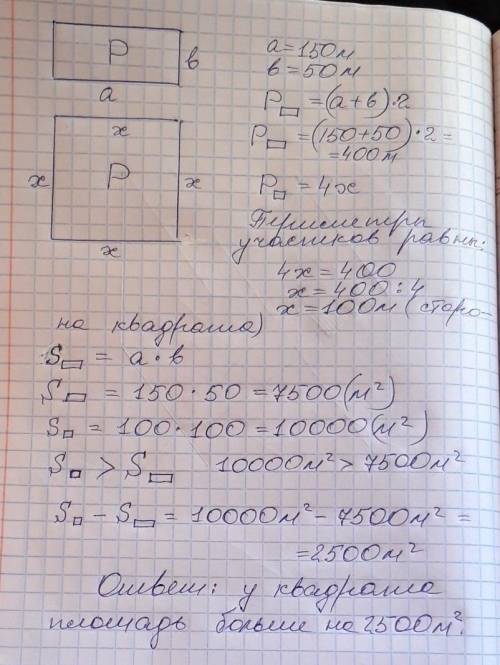 P
в
а
x
x
P
x
x
а = 150м
в = 50м
P▭ = (а + в) · 2
P▭ = (150 + 50) · 2 =
= 400м
P□ = 4x
Периметры
участков равны:
4x = 400
x = 400 : 4
x = 100м (сторо-
на квадрата)
S▭ = а · в
S▭ = 150 · 50 = 7500 (м²)
S□ = 100 · 100 = 10000 (м²)
S□ > S▭ 10000м² > 7500м²
S□ - S▭ = 10000м² - 7500м² =
= 2500м²
Ответ: у квадрата
площадь больше на 2500м².